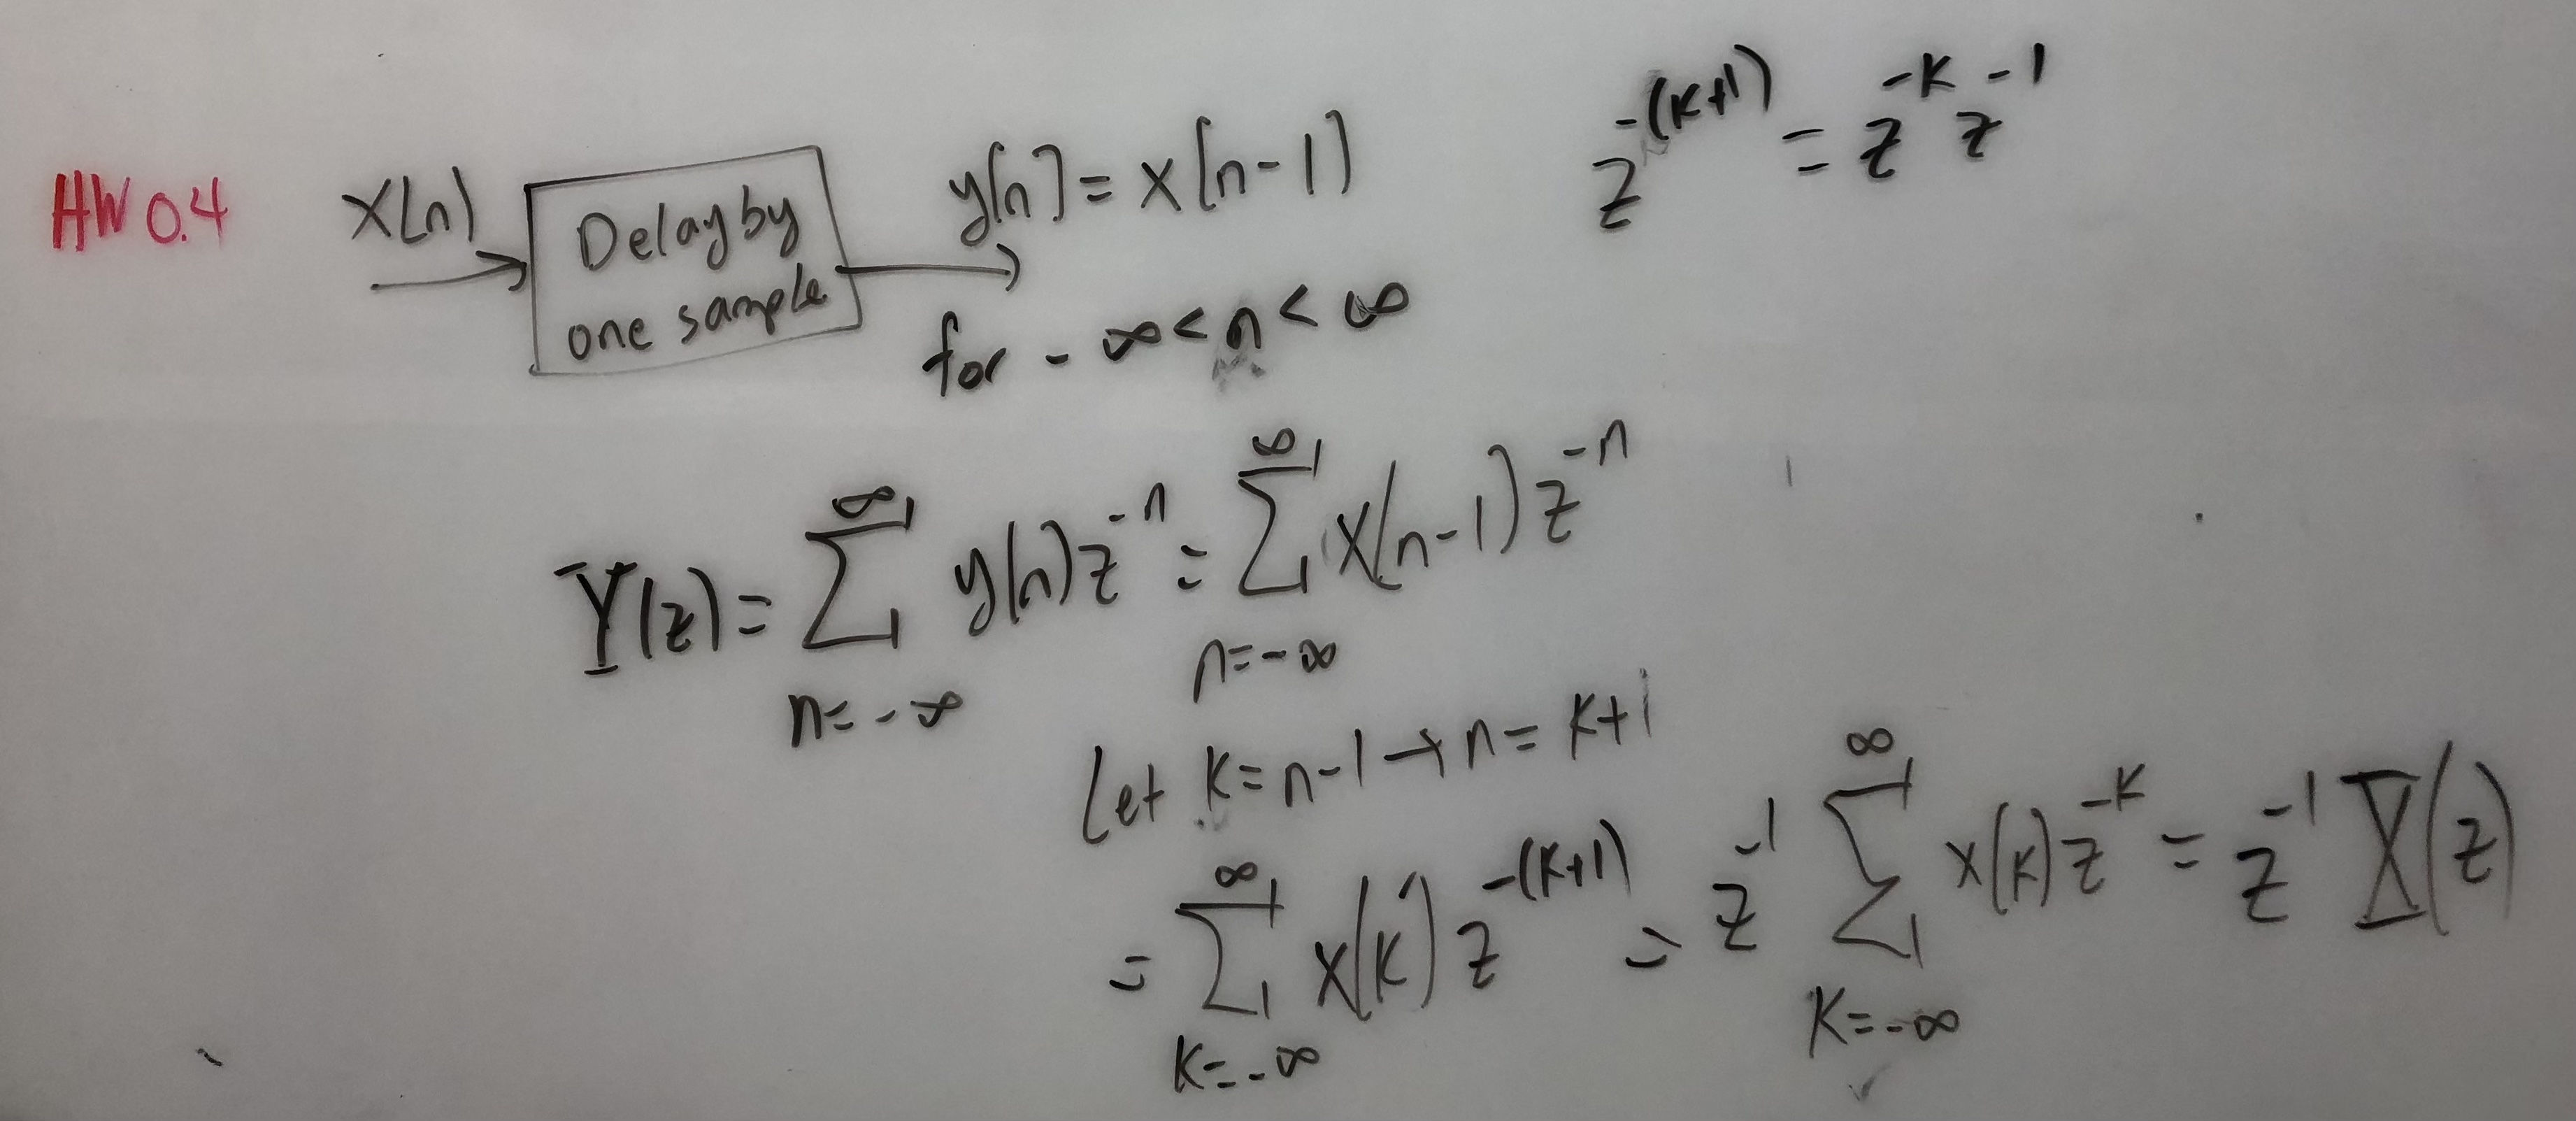 HW 0.4
x[n]
Delay by
one sample
y[n] = x[n-1]
for -∞ < n < ∞
z^{-(k+1)} = z^{-k} z^{-1}
Y(z) = \sum_{n=-∞}^{∞} y[n] z^{-n} = \sum_{n=-∞}^{∞} x[n-1] z^{-n}
Let k = n-1 → n = k+1
= \sum_{k=-∞}^{∞} x[k] z^{-(k+1)} = z^{-1} \sum_{k=-∞}^{∞} x[k] z^{-k} = z^{-1} X(z)